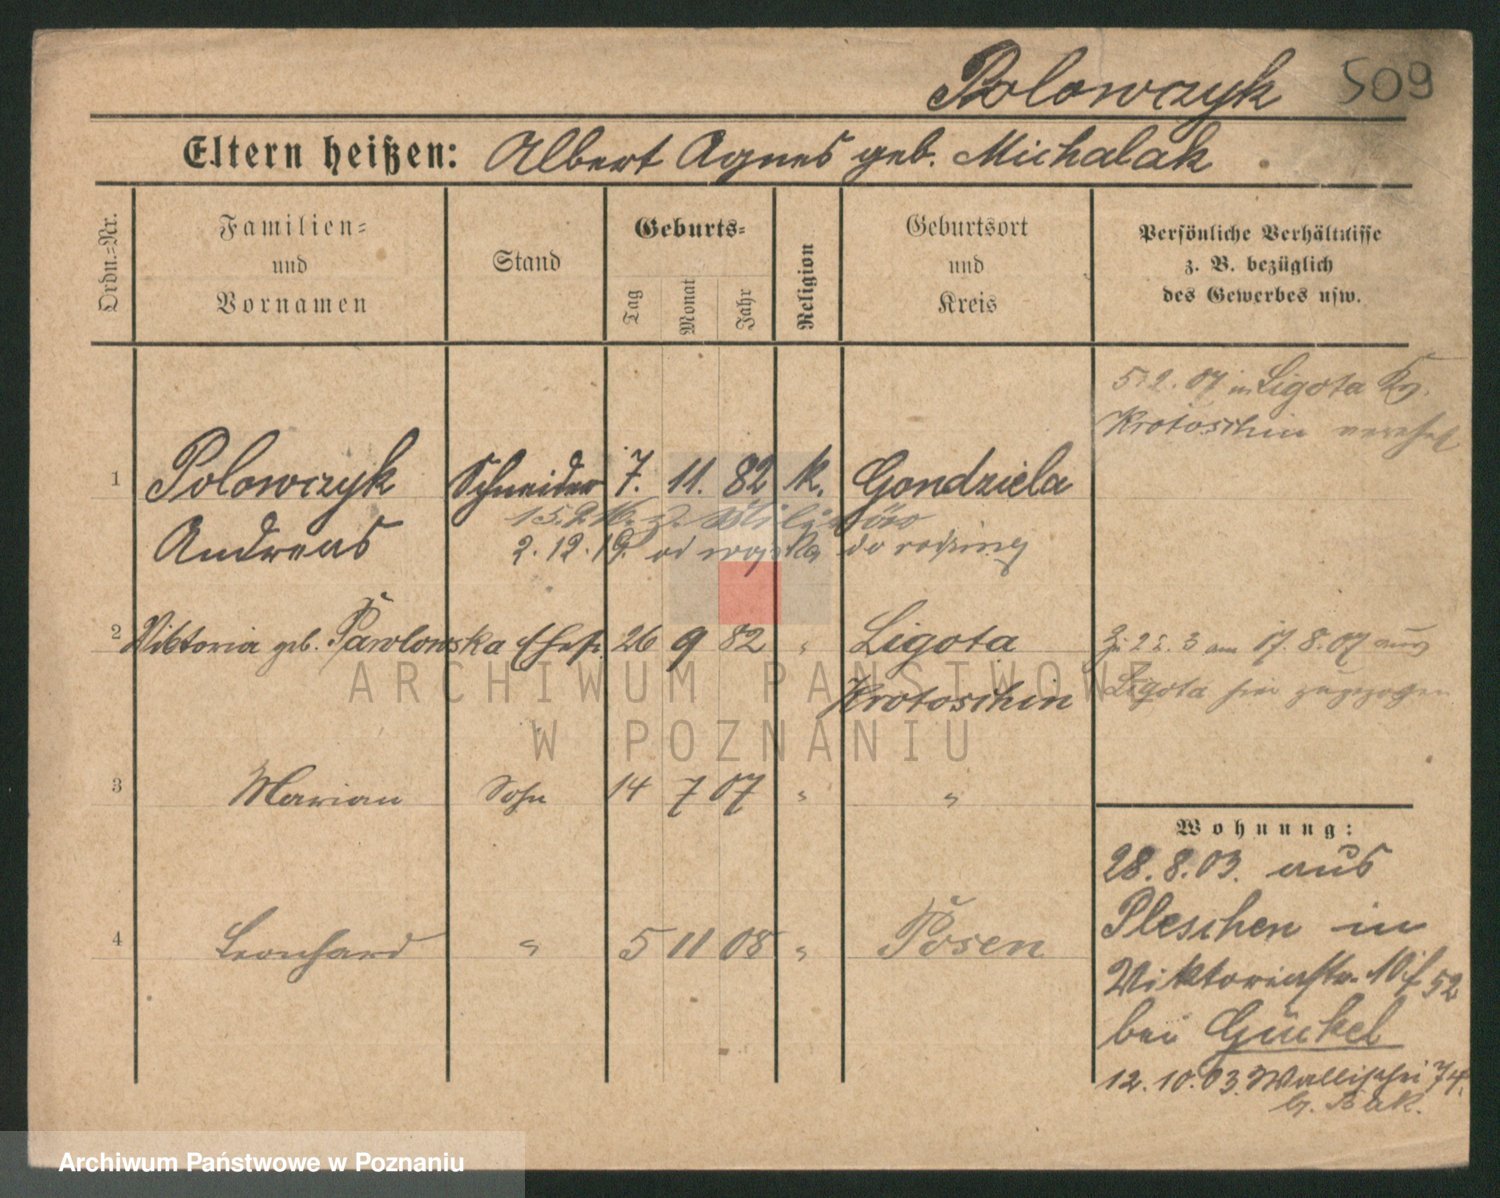 Polowczyk 509
Eltern heißen: Albert Agnes geb. Michalak
Ordn.-Nr.
Familien-
und
Vornamen
Stand
Geburts-
Tag
Monat
Jahr
Religion
Geburtsort
und
Kreis
Persönliche Verhältnisse
z. B. bezüglich
des Gewerbes usw.
5.2.07 in Ligota Kr.
Krotoschin verehel
1 Polowczyk Schneider 7. 11. 82 k. Gondziela
Andreas
2.12.19. od wojska do rodziny
2 Viktoria geb. Pawlowska Ehefr. 26 9 82 " Ligota
Krotoschin
Z. 2 u. 3 am 17.8.07 aus
Ligota hier zugezogen
3 Marian Sohn 14 7 07 " "
4 Leonhard " 5 11 08 " Posen
Wohnung:
28.8.03. aus
Pleschen in
Viktoriastr. 10 52
bei Gückel
12.10.03. Wallischei 74.
b. Bak.
ARCHIWUM PAŃSTWOWE
W POZNANIU
Archiwum Państwowe w Poznaniu